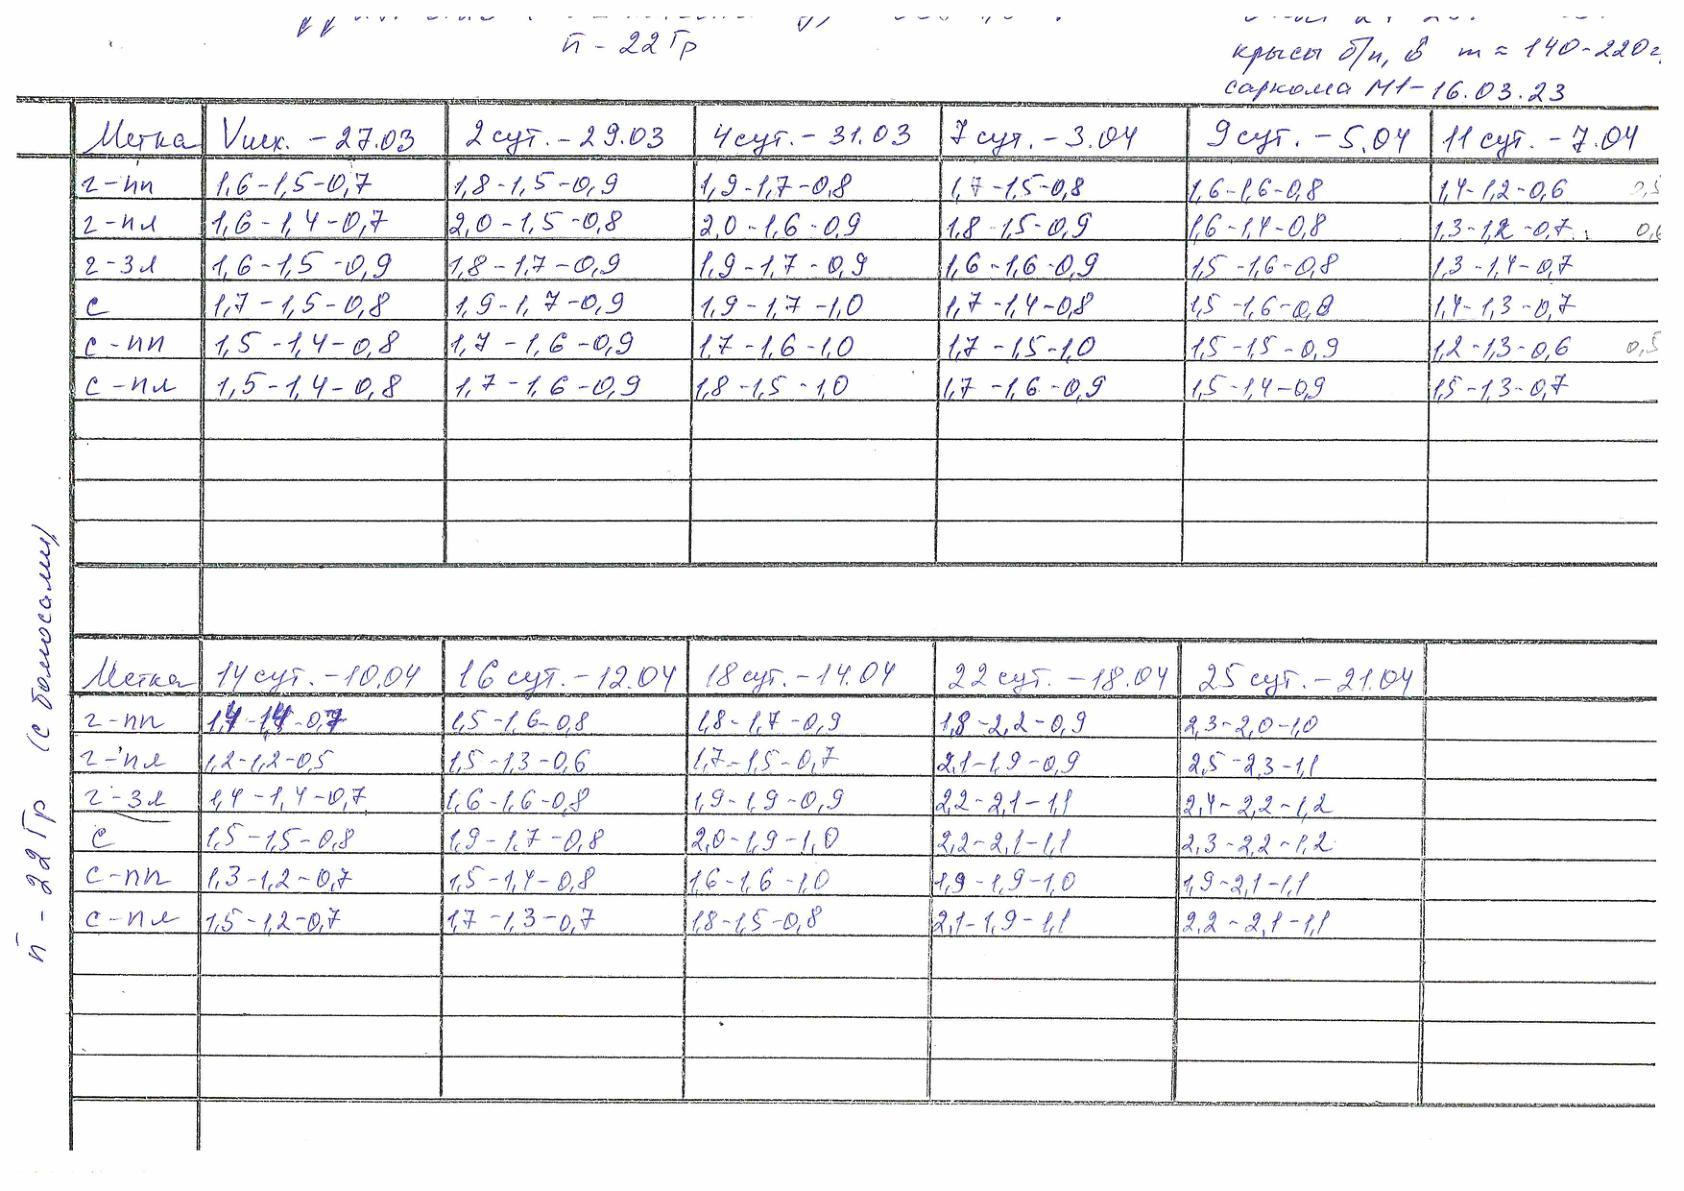 п - 22 Гр
крысы б/п, ♂ m ≈ 140-220г,
саркома М1-16.03.23
Метка Vисх. - 27.03 2 сут. - 29.03 4 сут. - 31.03 7 сут. - 3.04 9 сут. - 5.04 11 сут. - 7.04
г-пп 1,6-1,5-0,7 1,8-1,5-0,9 1,9-1,7-0,8 1,7-1,5-0,8 1,6-1,6-0,8 1,4-1,2-0,6 0,5
г-пл 1,6-1,4-0,7 2,0-1,5-0,8 2,0-1,6-0,9 1,8-1,5-0,9 1,6-1,4-0,8 1,3-1,2-0,7
г-зл 1,6-1,5-0,9 1,8-1,7-0,9 1,9-1,7-0,9 1,6-1,6-0,9 1,5-1,6-0,8 1,3-1,4-0,7
с 1,7-1,5-0,8 1,9-1,7-0,9 1,9-1,7-1,0 1,7-1,4-0,8 1,5-1,6-0,8 1,4-1,3-0,7
с-пп 1,5-1,4-0,8 1,7-1,6-0,9 1,7-1,6-1,0 1,7-1,5-1,0 1,5-1,5-0,9 1,2-1,3-0,6 0,5
с-пл 1,5-1,4-0,8 1,7-1,6-0,9 1,8-1,5-1,0 1,7-1,6-0,9 1,5-1,4-0,9 1,5-1,3-0,7
Метка 14 сут. - 10.04 16 сут. - 12.04 18 сут. - 14.04 22 сут. - 18.04 25 сут. - 21.04
г-пп 1,4-1,4-0,7 1,5-1,6-0,8 1,8-1,7-0,9 1,8-2,2-0,9 2,3-2,0-1,0
г-пл 1,2-1,2-0,5 1,5-1,3-0,6 1,7-1,5-0,7 2,1-1,9-0,9 2,5-2,3-1,1
г-зл 1,4-1,4-0,7 1,6-1,6-0,8 1,9-1,9-0,9 2,2-2,1-1,1 2,4-2,2-1,2
с 1,5-1,5-0,8 1,9-1,7-0,8 2,0-1,9-1,0 2,2-2,1-1,1 2,3-2,2-1,2
с-пп 1,3-1,2-0,7 1,5-1,4-0,8 1,6-1,6-1,0 1,9-1,9-1,0 1,9-2,1-1,1
с-пл 1,5-1,2-0,7 1,7-1,3-0,7 1,8-1,5-0,8 2,1-1,9-1,1 2,2-2,1-1,1
п - 22 Гр (с болюсами)